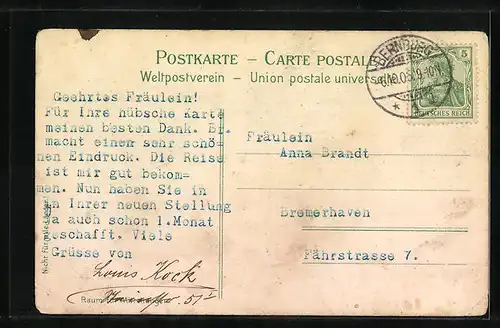 POSTKARTE – CARTE POSTALE
Weltpostverein – Union postale universelle
BERNBURG
5
DEUTSCHES REICH
Geehrtes Fräulein!
Für Ihre hübsche Karte
meinen besten Dank. Er
macht einen sehr schö-
nen Eindruck. Die Reise
ist mir gut bekom-
men. Nun haben Sie in
in Ihrer neuen Stellung
ja auch schon 1.Monat
geschafft. Viele
Grüsse von
Louis Kock
51
Fräulein
Anna Brandt
Bremerhaven
Fährstrasse 7.